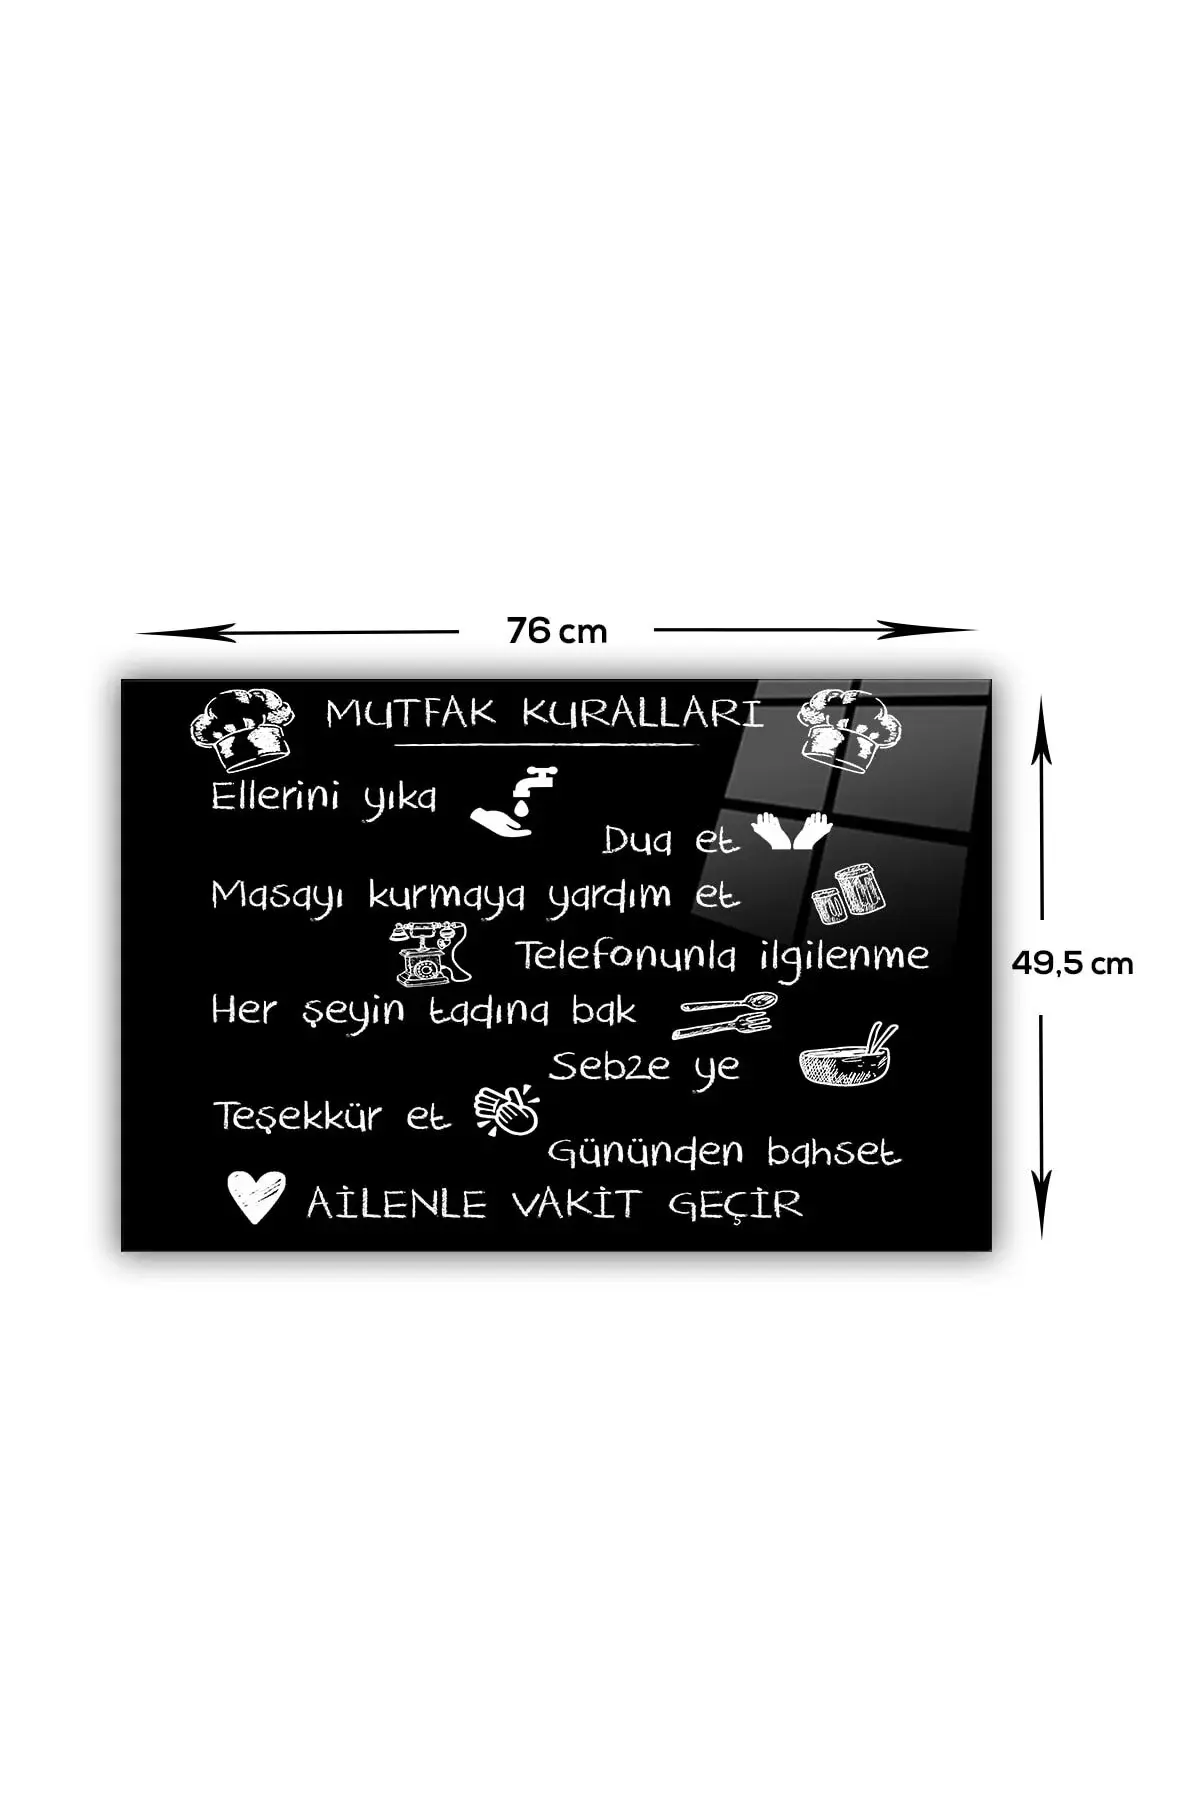 76 cm
MUTFAK KURALLARI
Ellerini yıka
Dua et
Masayı kurmaya yardım et
Telefonunla ilgilenme
49,5 cm
Her şeyin tadına bak
Sebze ye
Teşekkür et
Gününden bahset
AİLENLE VAKİT GEÇİR